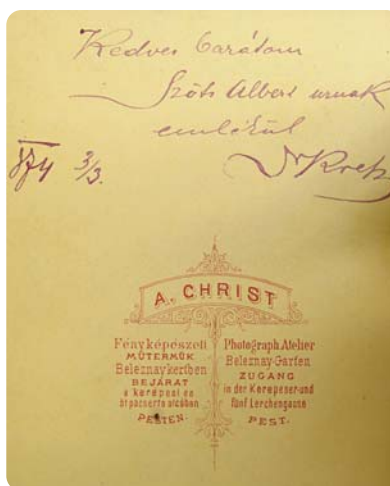 Kedves barátom
Szöts Albert urnak
emlékül
874 3/3.
Dr Kretz
A. CHRIST
Fényképészeti
MŰTERMÜK
Beleznaykertben
BEJÁRAT
a kerepesi es
öt pacserta utczában
PESTEN.
Photograph. Atelier
Beleznay-Garten
ZUGANG
in der Kerepeser-und
fünf Lerchengasse
PEST.